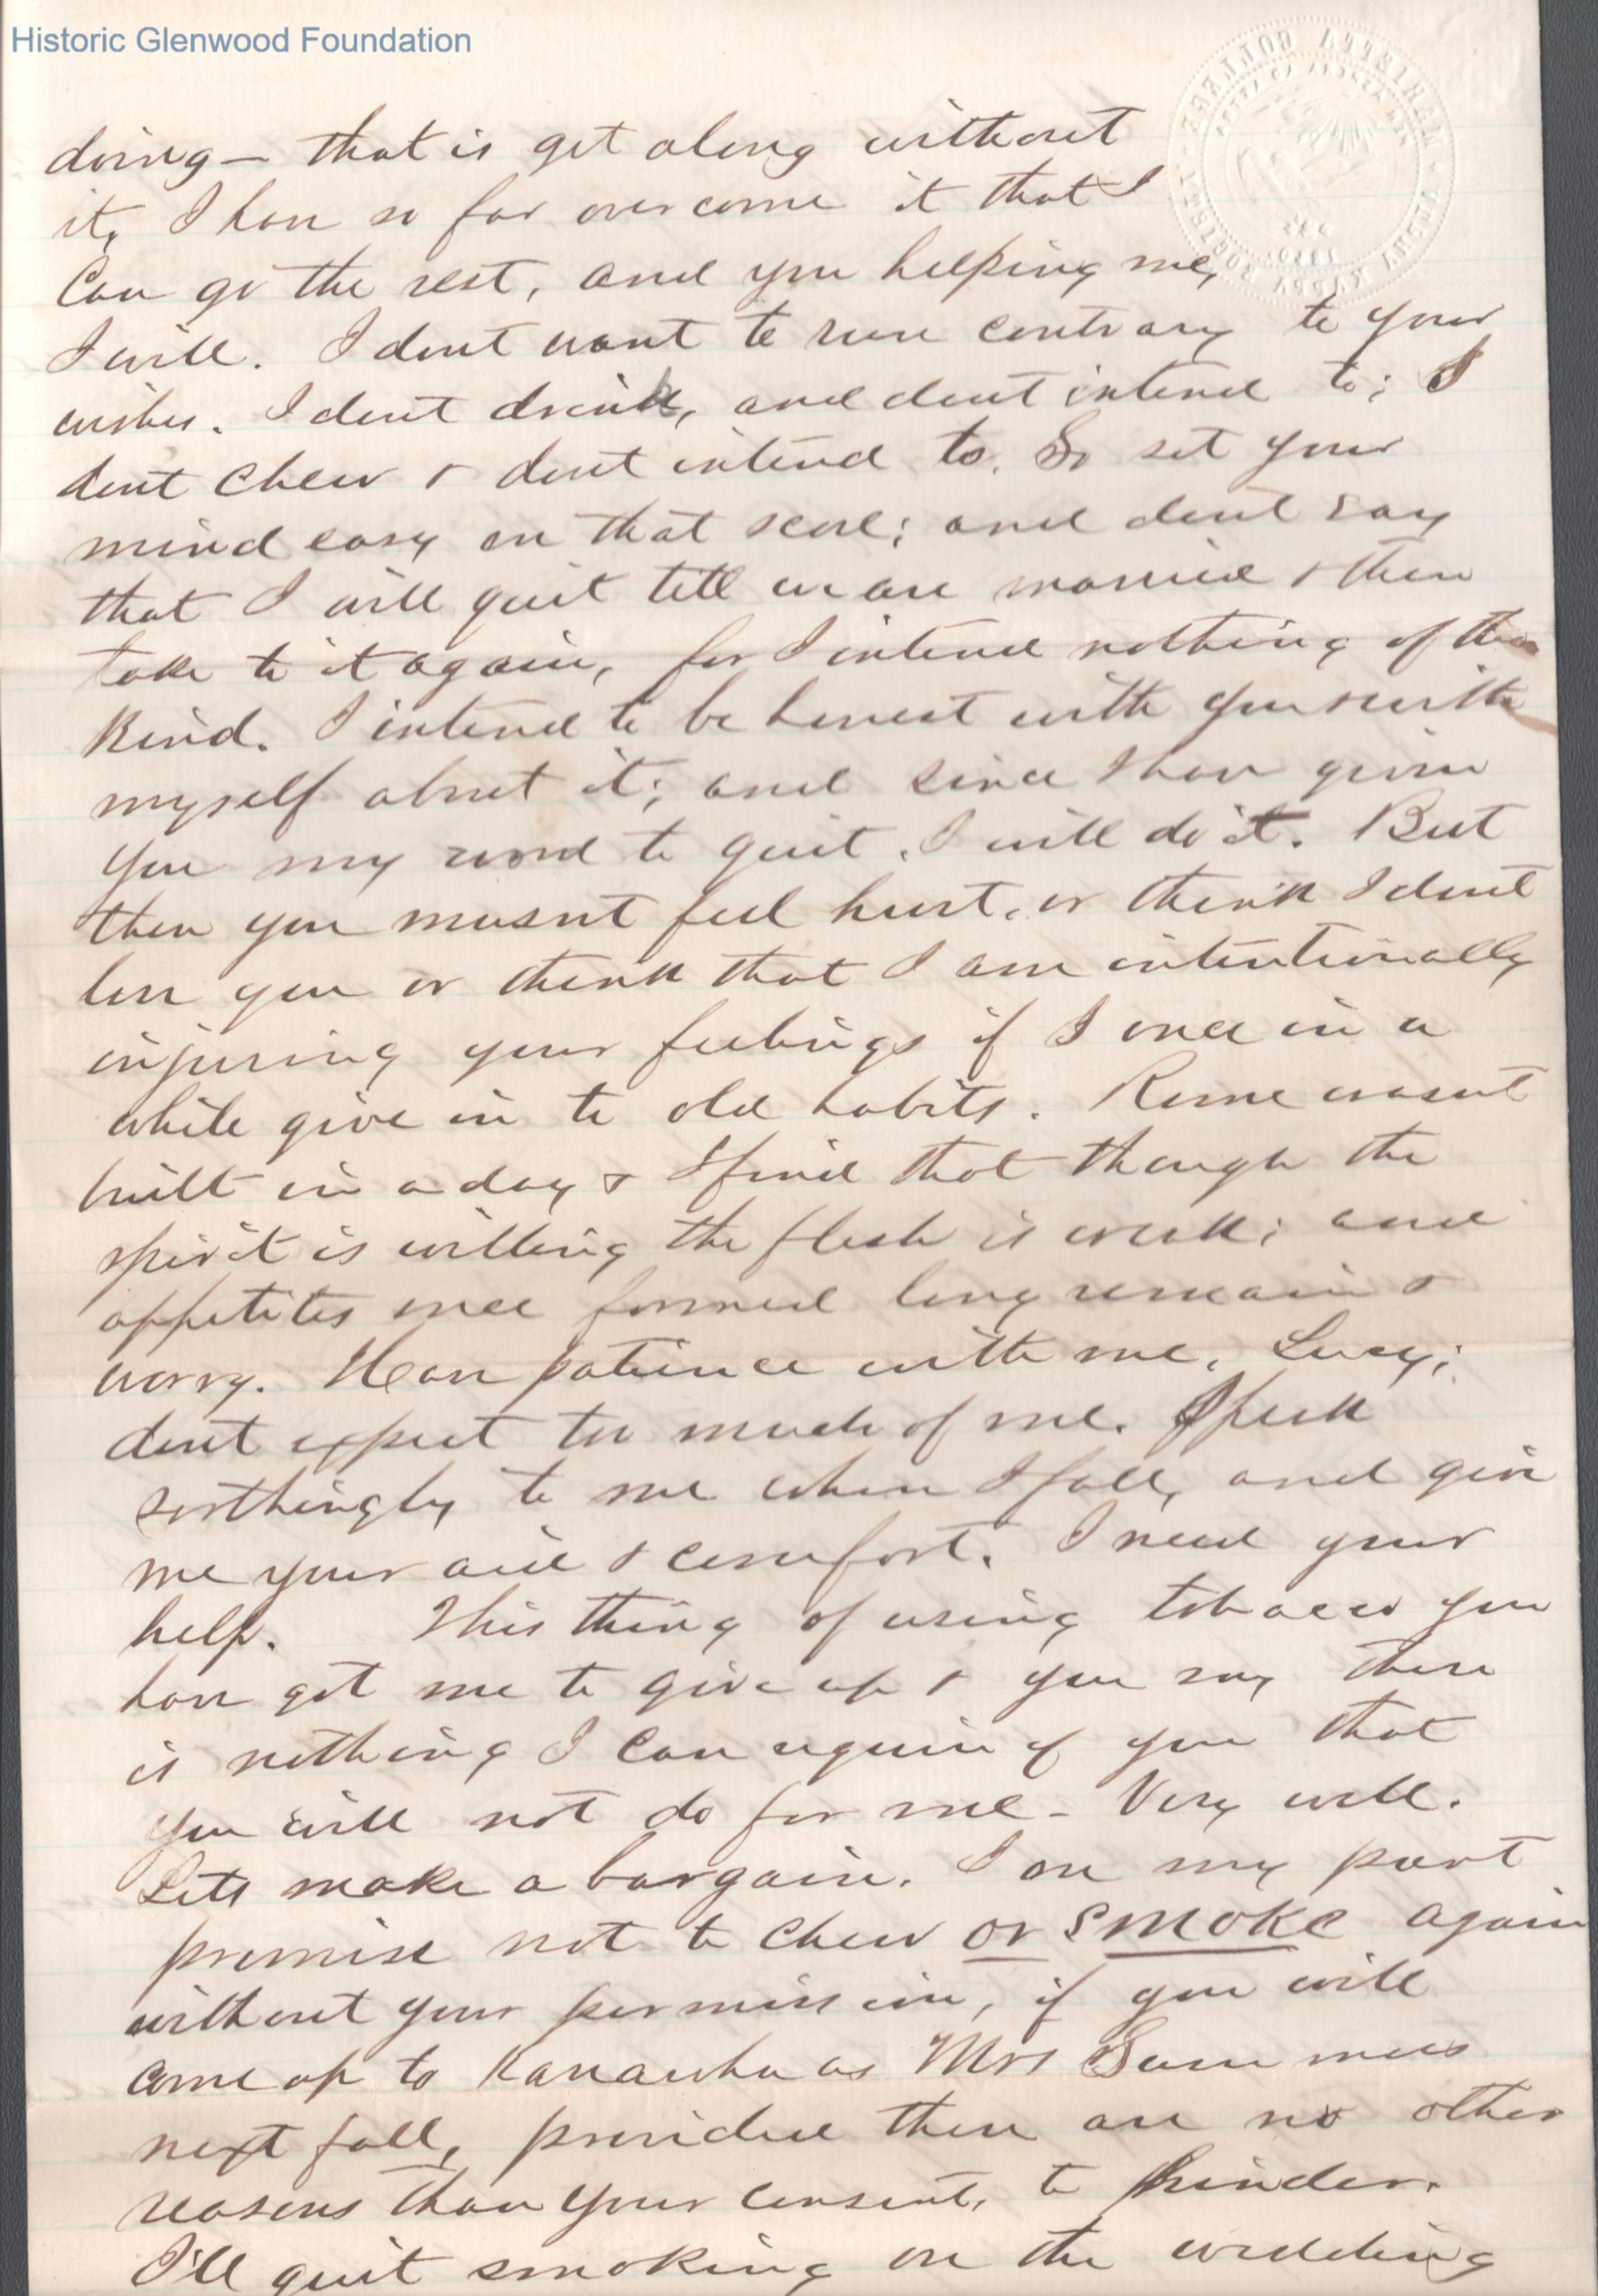 Historic Glenwood Foundation
doing — that is get along without
it, I have so far overcome it that I
Can go the rest, and you helping me,
I will. I dont want to run contrary to your
wishes. I dont drink, and dont intend to; I
dont chew & dont intend to. So set your
mind easy on that score; and dont say
that I will quit till we are married & then
take to it again, for I intend nothing of the
kind. I intend to be honest with you & with
myself about it; and since I have given
you my word to quit, I will do it. But
then you musnt feel hurt, or think I dont
love you or think that I am intentionally
injuring your feelings if I once in a
while give in to old habits. Rome wasnt
built in a day & I find that though the
spirit is willing the flesh is weak; and
appetites once formed long remain &
worry. Have patience with me, Lucy;
dont expect too much of me. Speak
soothingly to me when I fall, and give
me your aid & comfort. I need your
help. This thing of using tobacco you
have got me to give up & you say there
is nothing I can require of you that
you will not do for me - Very well.
Lets make a bargain. I on my part
promise not to chew or smoke again
without your permission, if you will
come up to Kanawha as Mrs Summers
next fall, provided there are no other
reasons than your consent, to hinder.
I'll quit smoking on the wedding